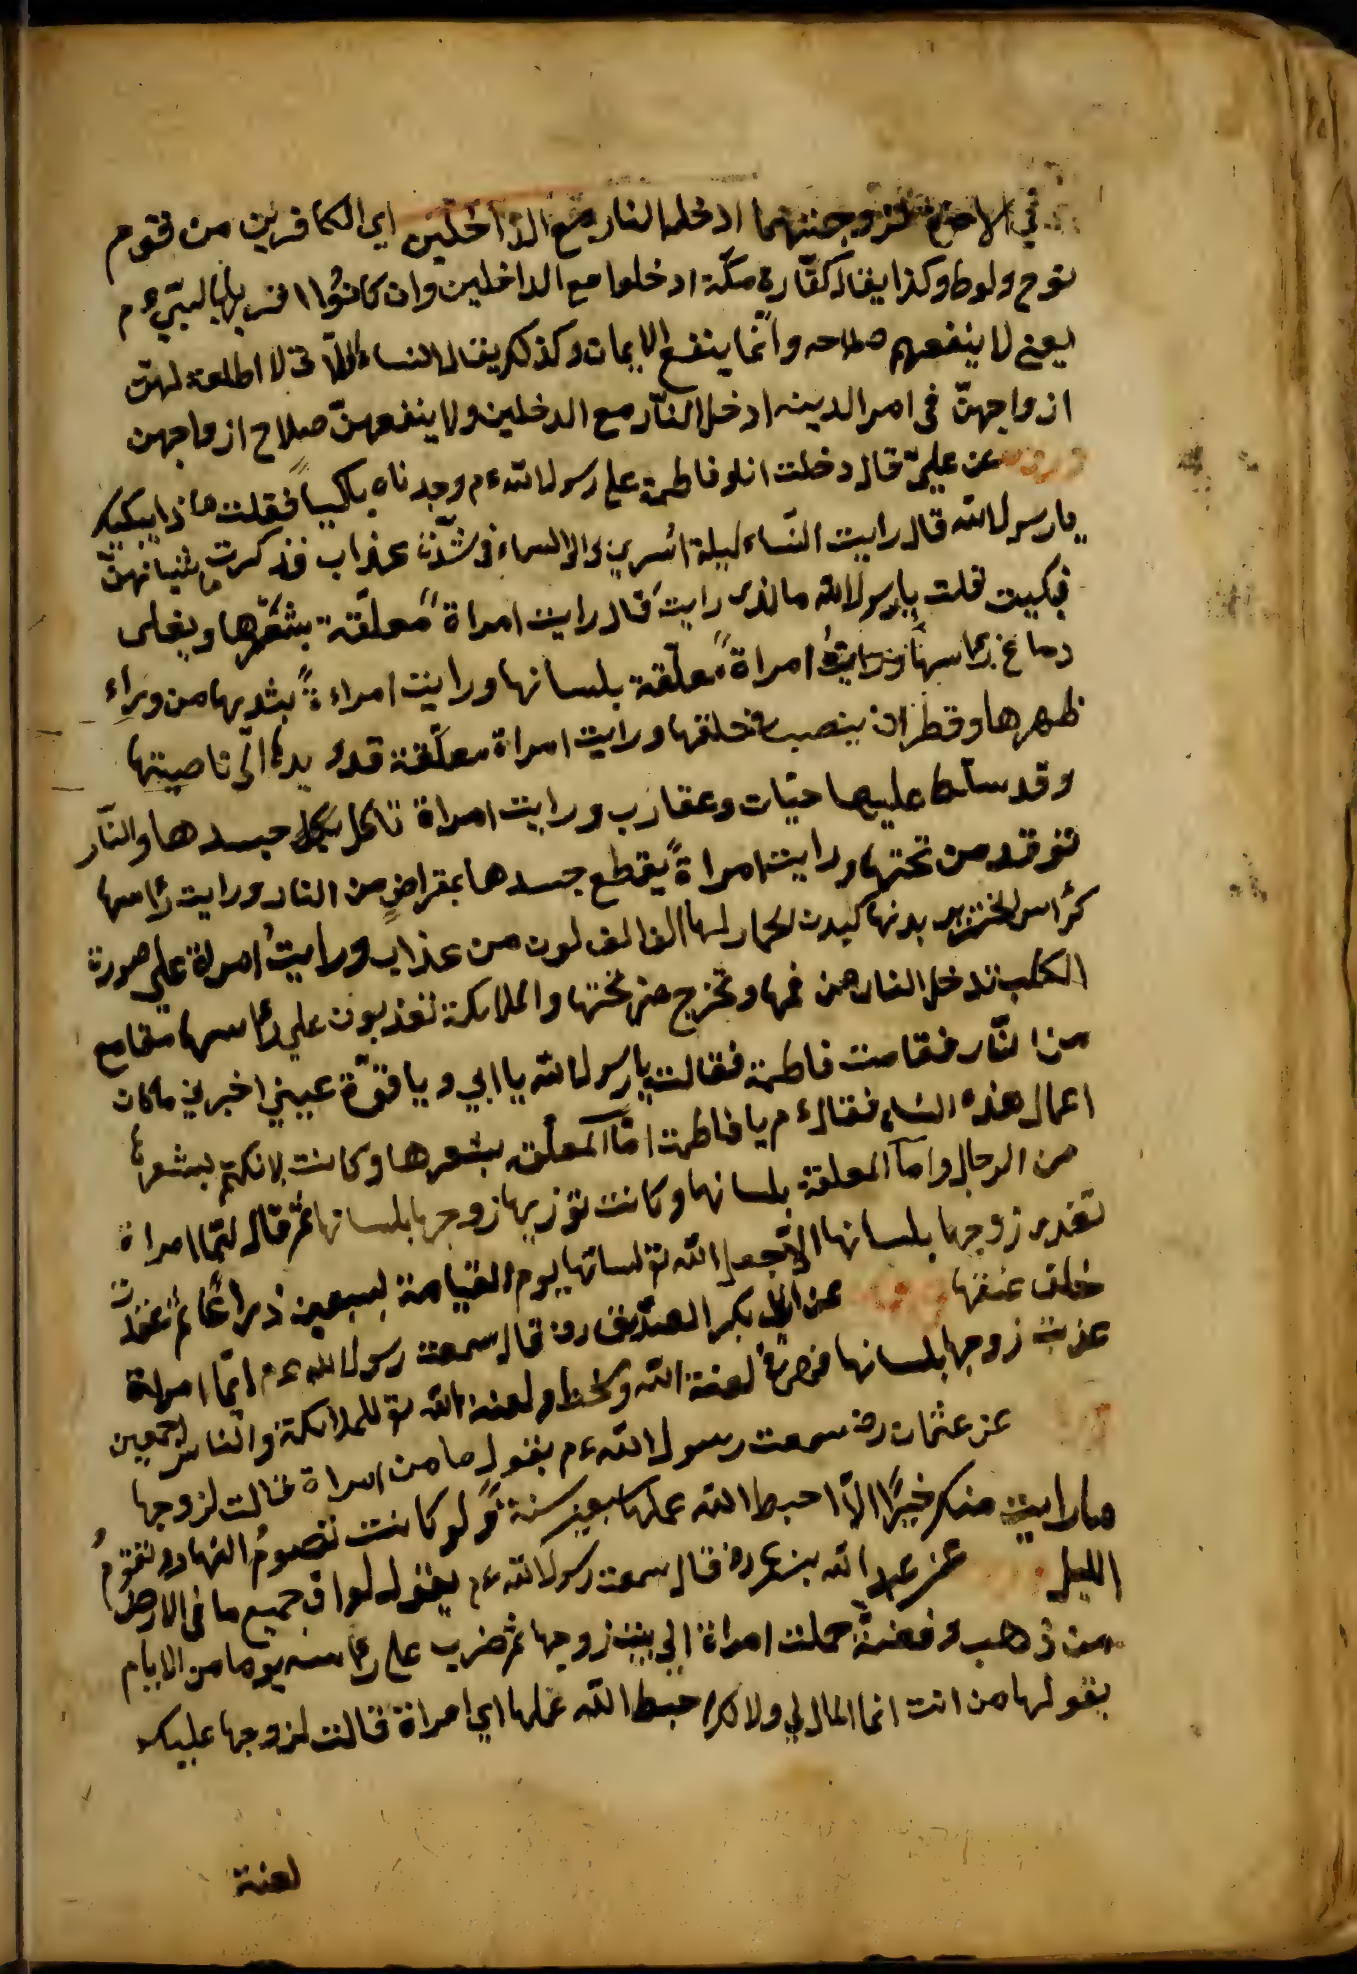 في الاخرة لزوجتهما ادخلا النار مع الداخلين اي الكافرين من قوم
نوح ولوط وكذا يقال كفّار مكّة ادخلوا مع الداخلين وان كانوا اقربا النبي ءم
يعني لا ينفعهم صلاحه وانّما ينفع الايمان وكذلك يقال النساء اللّاتى لا اطاعة لهنّ
ازواجهنّ فى امر الدين ادخلا النّار مع الدخلين ولا ينفعهنّ صلاح ازواجهن
عن عليّ قال دخلت انا وفاطمة على رسول الله ءم وجدناه باكيا فقلت ماذا يبكيك
يا رسول الله قال رايت النّساء ليلة اسري الى السماء فى شدّة عذاب فذكرت
فبكيت قلت يا رسول الله ما الذى رايت قال رايت امراة معلّقة بشعرها ويغلى
دماغ رأسها ورايت امراة معلّقة بلسانها ورايت امراءة بثديها من وراء
ظهرها وقطران ينصب فى حلقها ورايت امراة معلّقة قد يدها الى ناصيتها
وقد سلّط عليها حيّات وعقارب ورايت امراة تاكل جسدها والنّار
توقد من تحتها ورايت امراةً يقطع جسدها بمقراضٍ من النار ورايت رأسها
كرأس الخنزير بدنها كبدن الحمار لها الف الف لون من عذاب ورايتُ امراة على صورة
الكلب تدخل النار من فمها وتخرج من تحتها والملائكة تعذبون على رأسها مقامع
من النّار فقامت فاطمة فقالت يا رسول الله يا ابي ويا قرّة عيني اخبرني ما كان
اعمال هذه النساء فقال ءم يا فاطمة امّا المعلّقة بشعرها وكانت لا تكتم بشعرها
من الرجال وامّا المعلقة بلسانها وكانت تؤذيها زوجها بلسانها ثم قال ايّما امراة
تقدى زوجها بلسانها الا جعل الله تع لسانها يوم القيامة بسبعين ذراعًا ثم عقدت
خلف عنقها عن ابى بكر الصدّيق رض قال سمعت رسول الله ءم ايّما امراة
عذبت زوجها بلسانها فهى فى لعنة الله وسخطه ولعنة الله تع للملائكة والناس اجمعين
عن عثمان رض سمعت رسول الله ءم يقول ما من امراة قالت لزوجها
ما رايت منك خيرًا الّا احبط الله عملها سبعين سنة ولو كانت تصومُ النهار وتقومُ
الليل عن عبد الله بن عمر رض قال سمعت رسول الله ءم يقول لو ان جميع ما فى الارض
من ذهب وفضةٍ حملت امراة الى بيت زوجها ثم ضرب على رأسه يوما من الايام
بقولها من انت انما المال لي ولا لك احبط الله عملها اي امراة قالت لزوجها عليك
لعنة